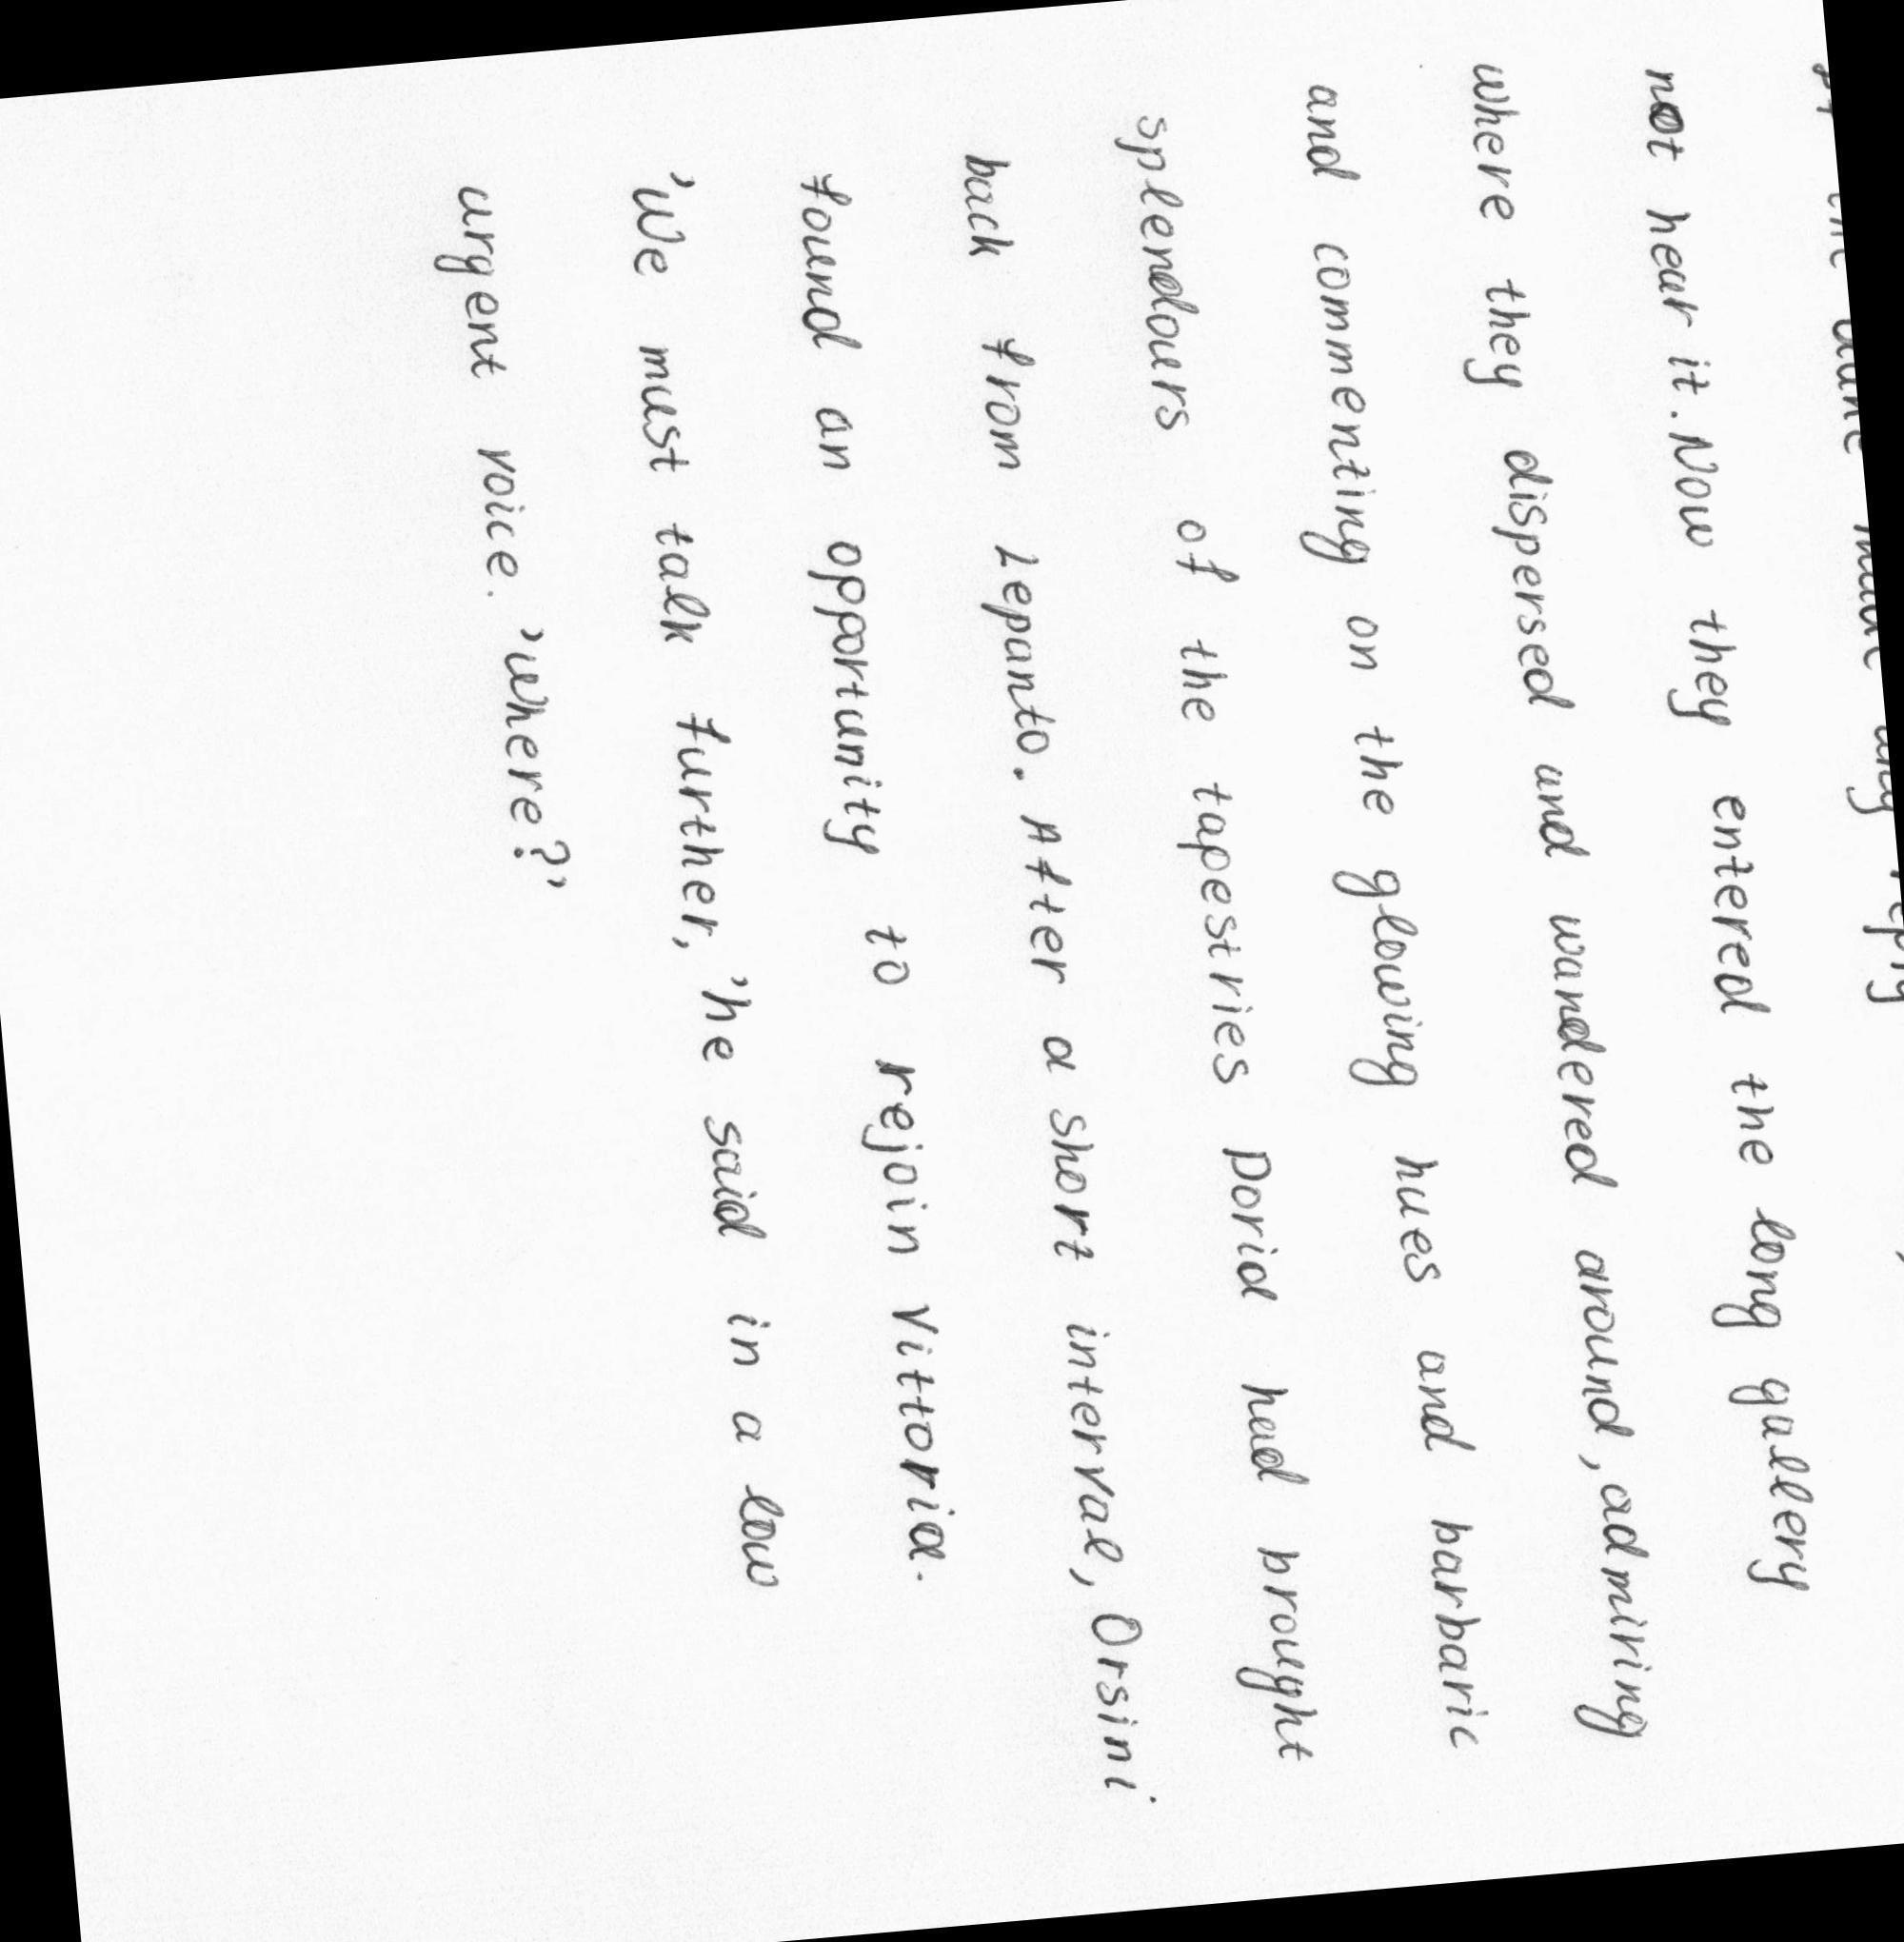 not hear it. Now they entered the long gallery
where they dispersed and wandered around, admiring
and commenting on the glowing hues and barbaric
splendours of the tapestries Doria had brought
back from Lepanto. After a short interval, Orsini
found an opportunity to rejoin Vittoria.
'We must talk further,' he said in a low
urgent voice. 'where?'